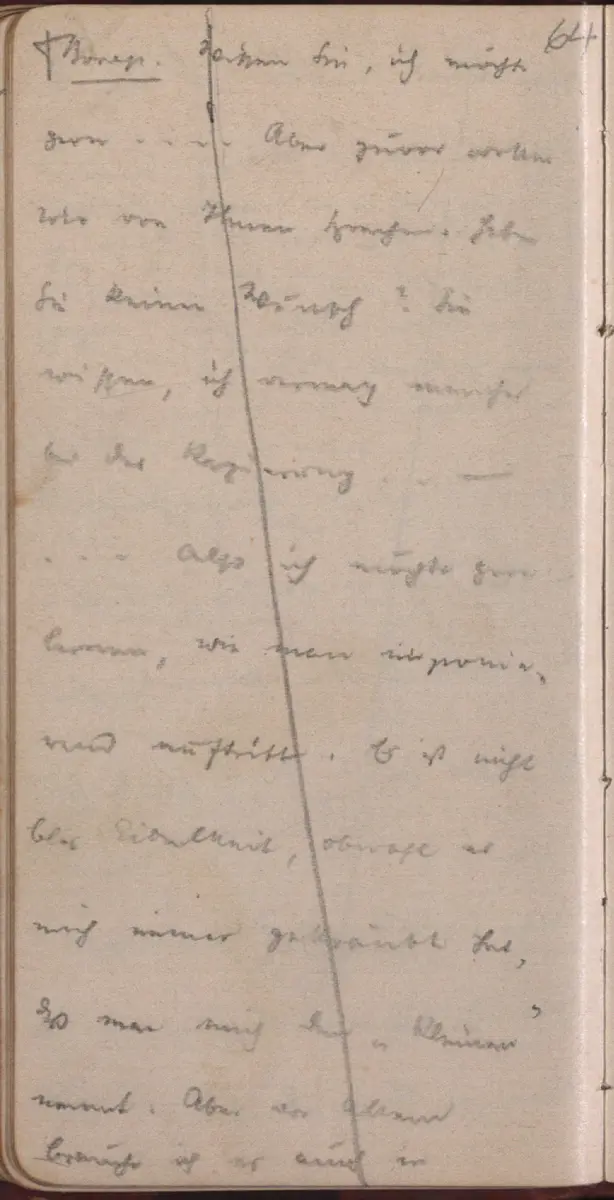 64.
Bonap. Wissen Sie, ich möchte
gern .... Aber zuvor wollen
wir von Ihnen sprechen. Haben
Sie keinen Wunsch? Sie
wissen, ich vermag manches
bei der Regierung . . —
. . . Also ich möchte gern
lernen, wie man imponie-
rend auftritt. Es ist nicht
blos Eitelkeit, obwohl es
mich immer gekränkt hat,
dass man mich den „Kleinen"
nennt. Aber vor Allem
brauche ich es auch in